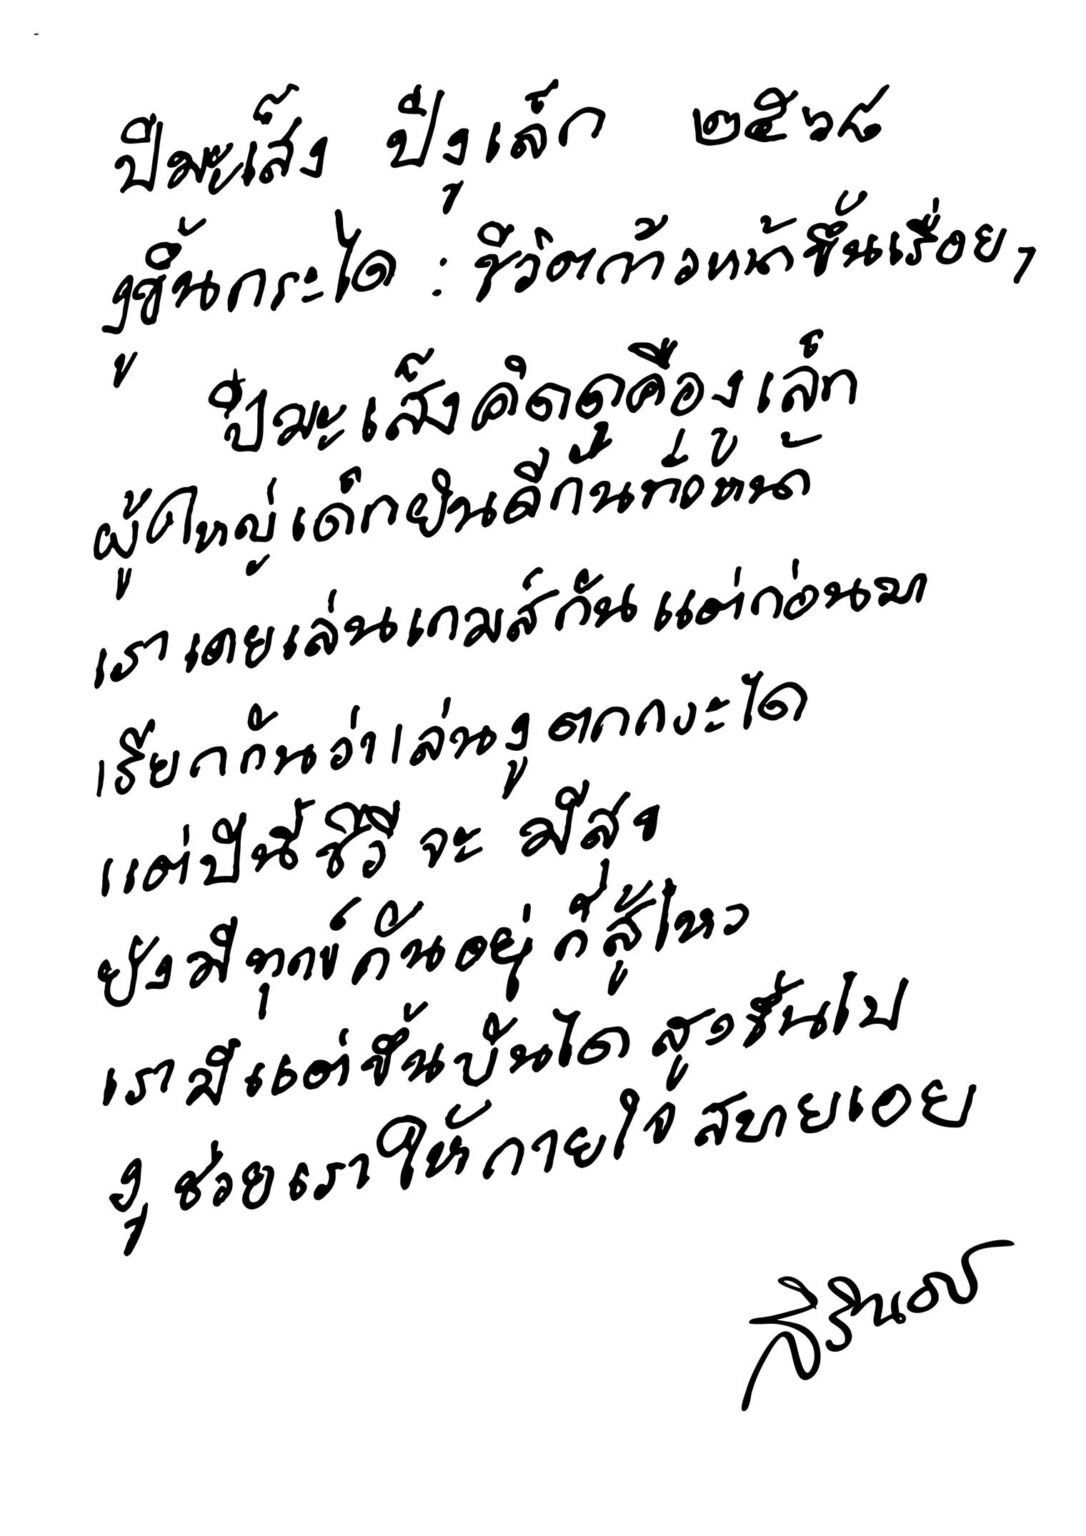 ปีมะเส็ง ปีงูเล็ก ๒๕๖๘
งูขึ้นกระได : ชีวิตก้าวหน้าขึ้นเรื่อยๆ
ปีมะเส็งคิดดูคืองูเล็ก
ผู้ใหญ่เด็กยินดีกันทั่วหน้า
เราเคยเล่นเกมส์กันแต่ก่อนมา
เรียกกันว่าเล่นงูตกกระได
แต่ปีนี้ชีวีจะมีสุข
ยังมีทุกข์กันอยู่ก็สู้ไหว
เรามีแต่ขึ้นบันไดสูงขึ้นไป
งูช่วยเราให้กายใจสบายเอย
สิรินธร